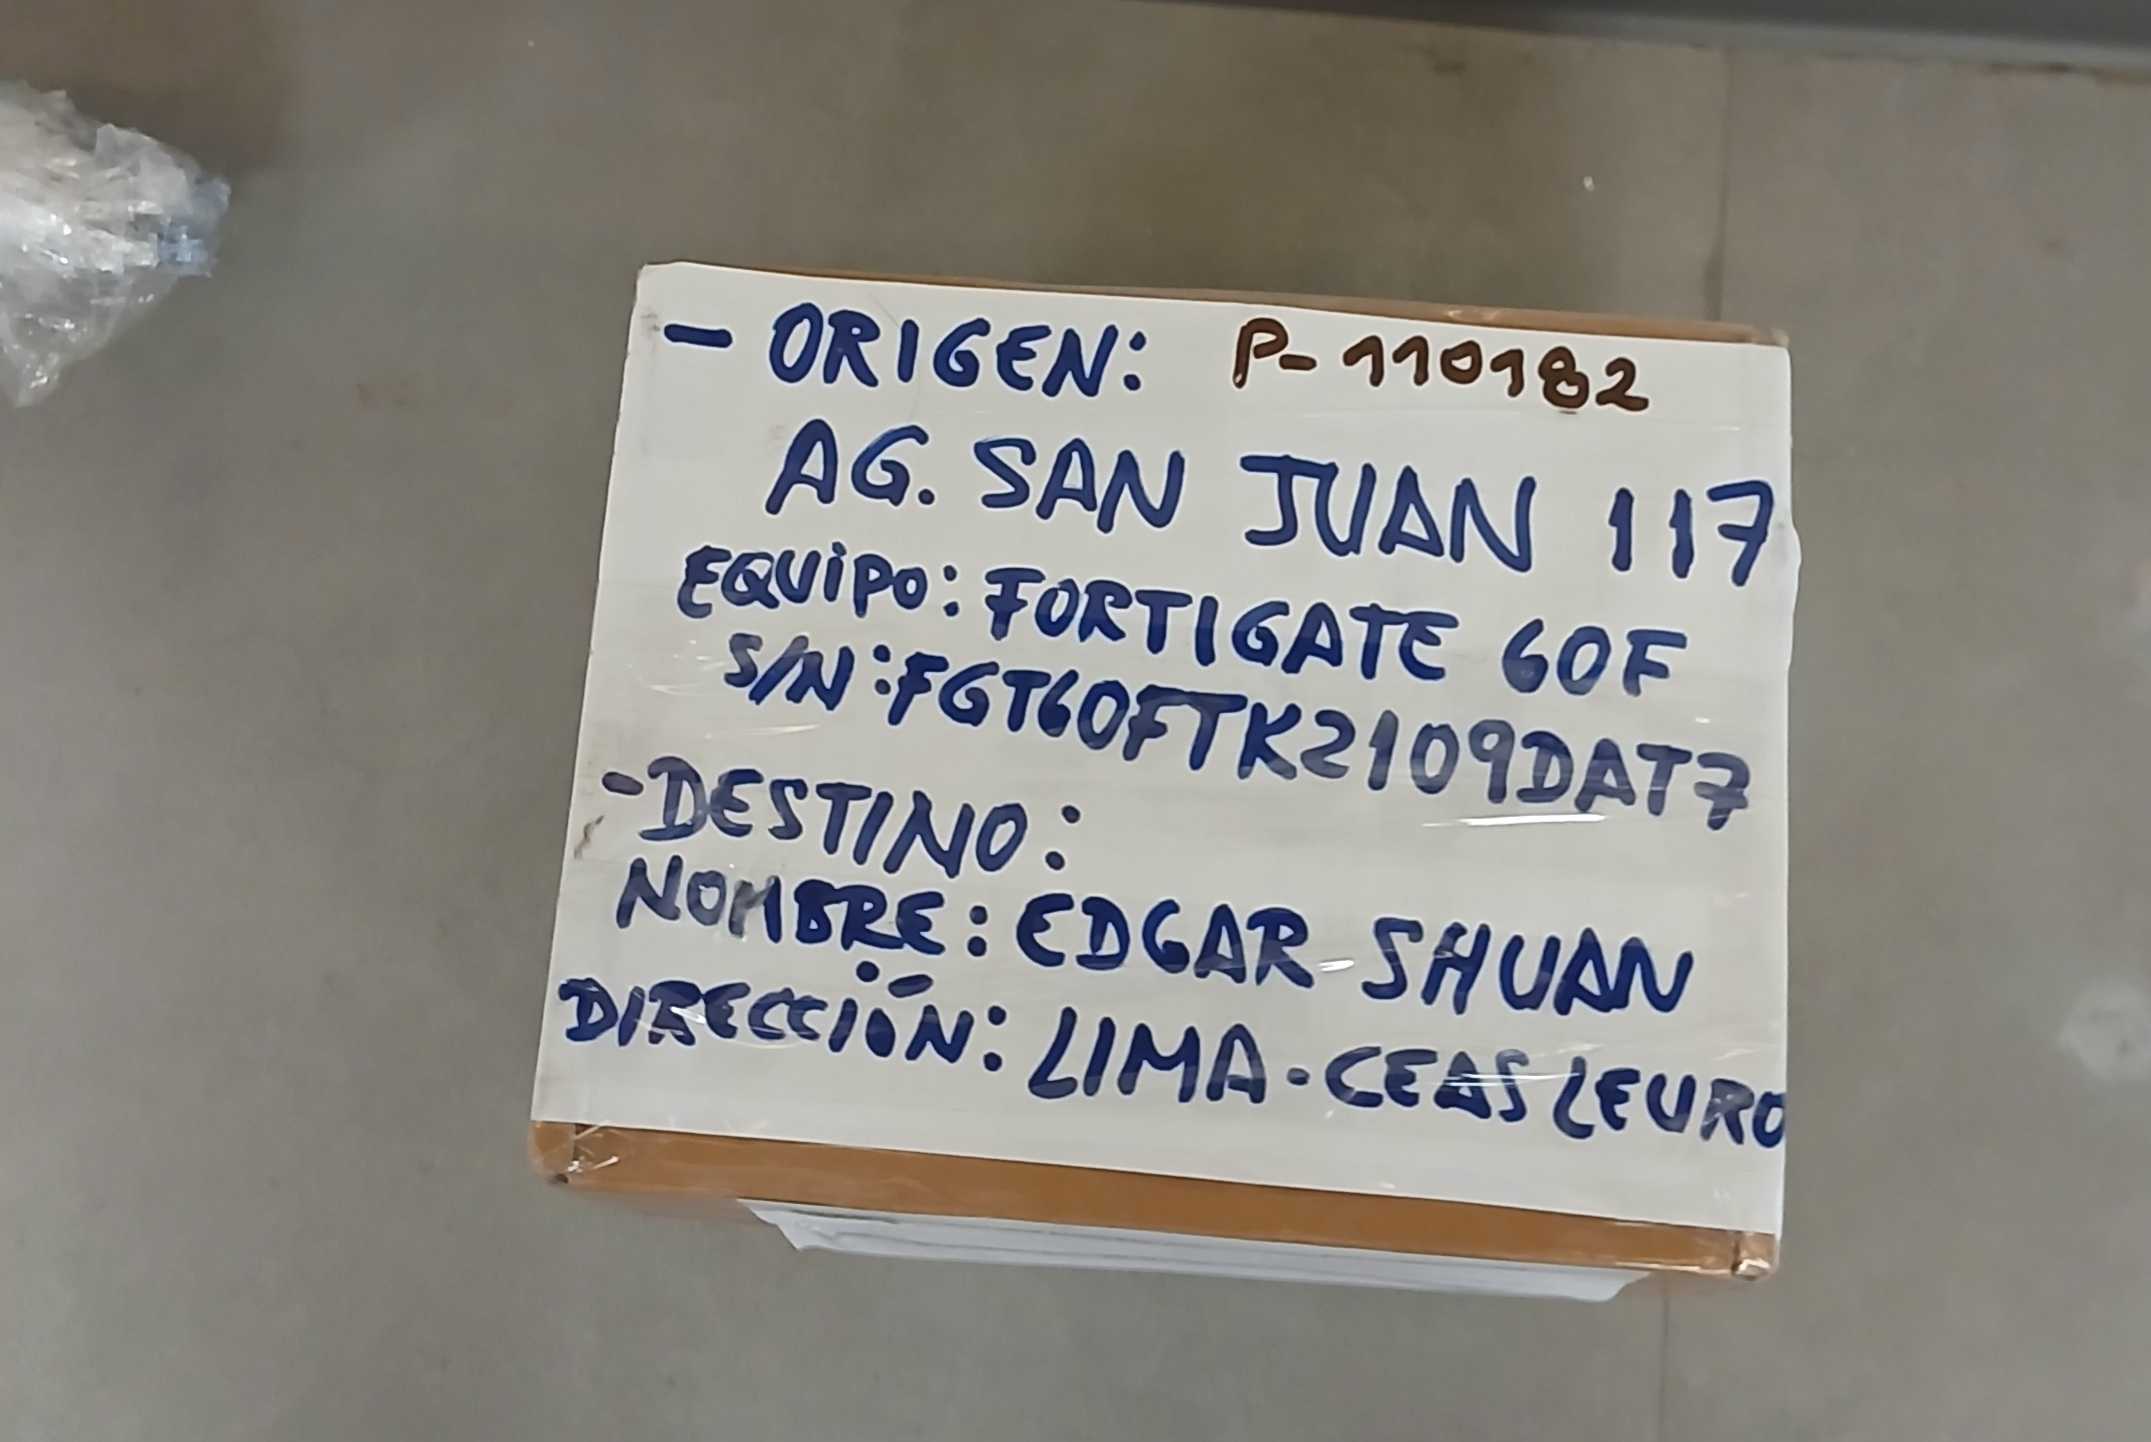 - ORIGEN: P-110182
AG. SAN JUAN 117
EQUIPO: FORTIGATE 60F
S/N: FGT60FTK2109DAT7
- DESTINO:
NOMBRE: EDGAR SHUAN
DIRECCIÓN: LIMA-CEASLEURO